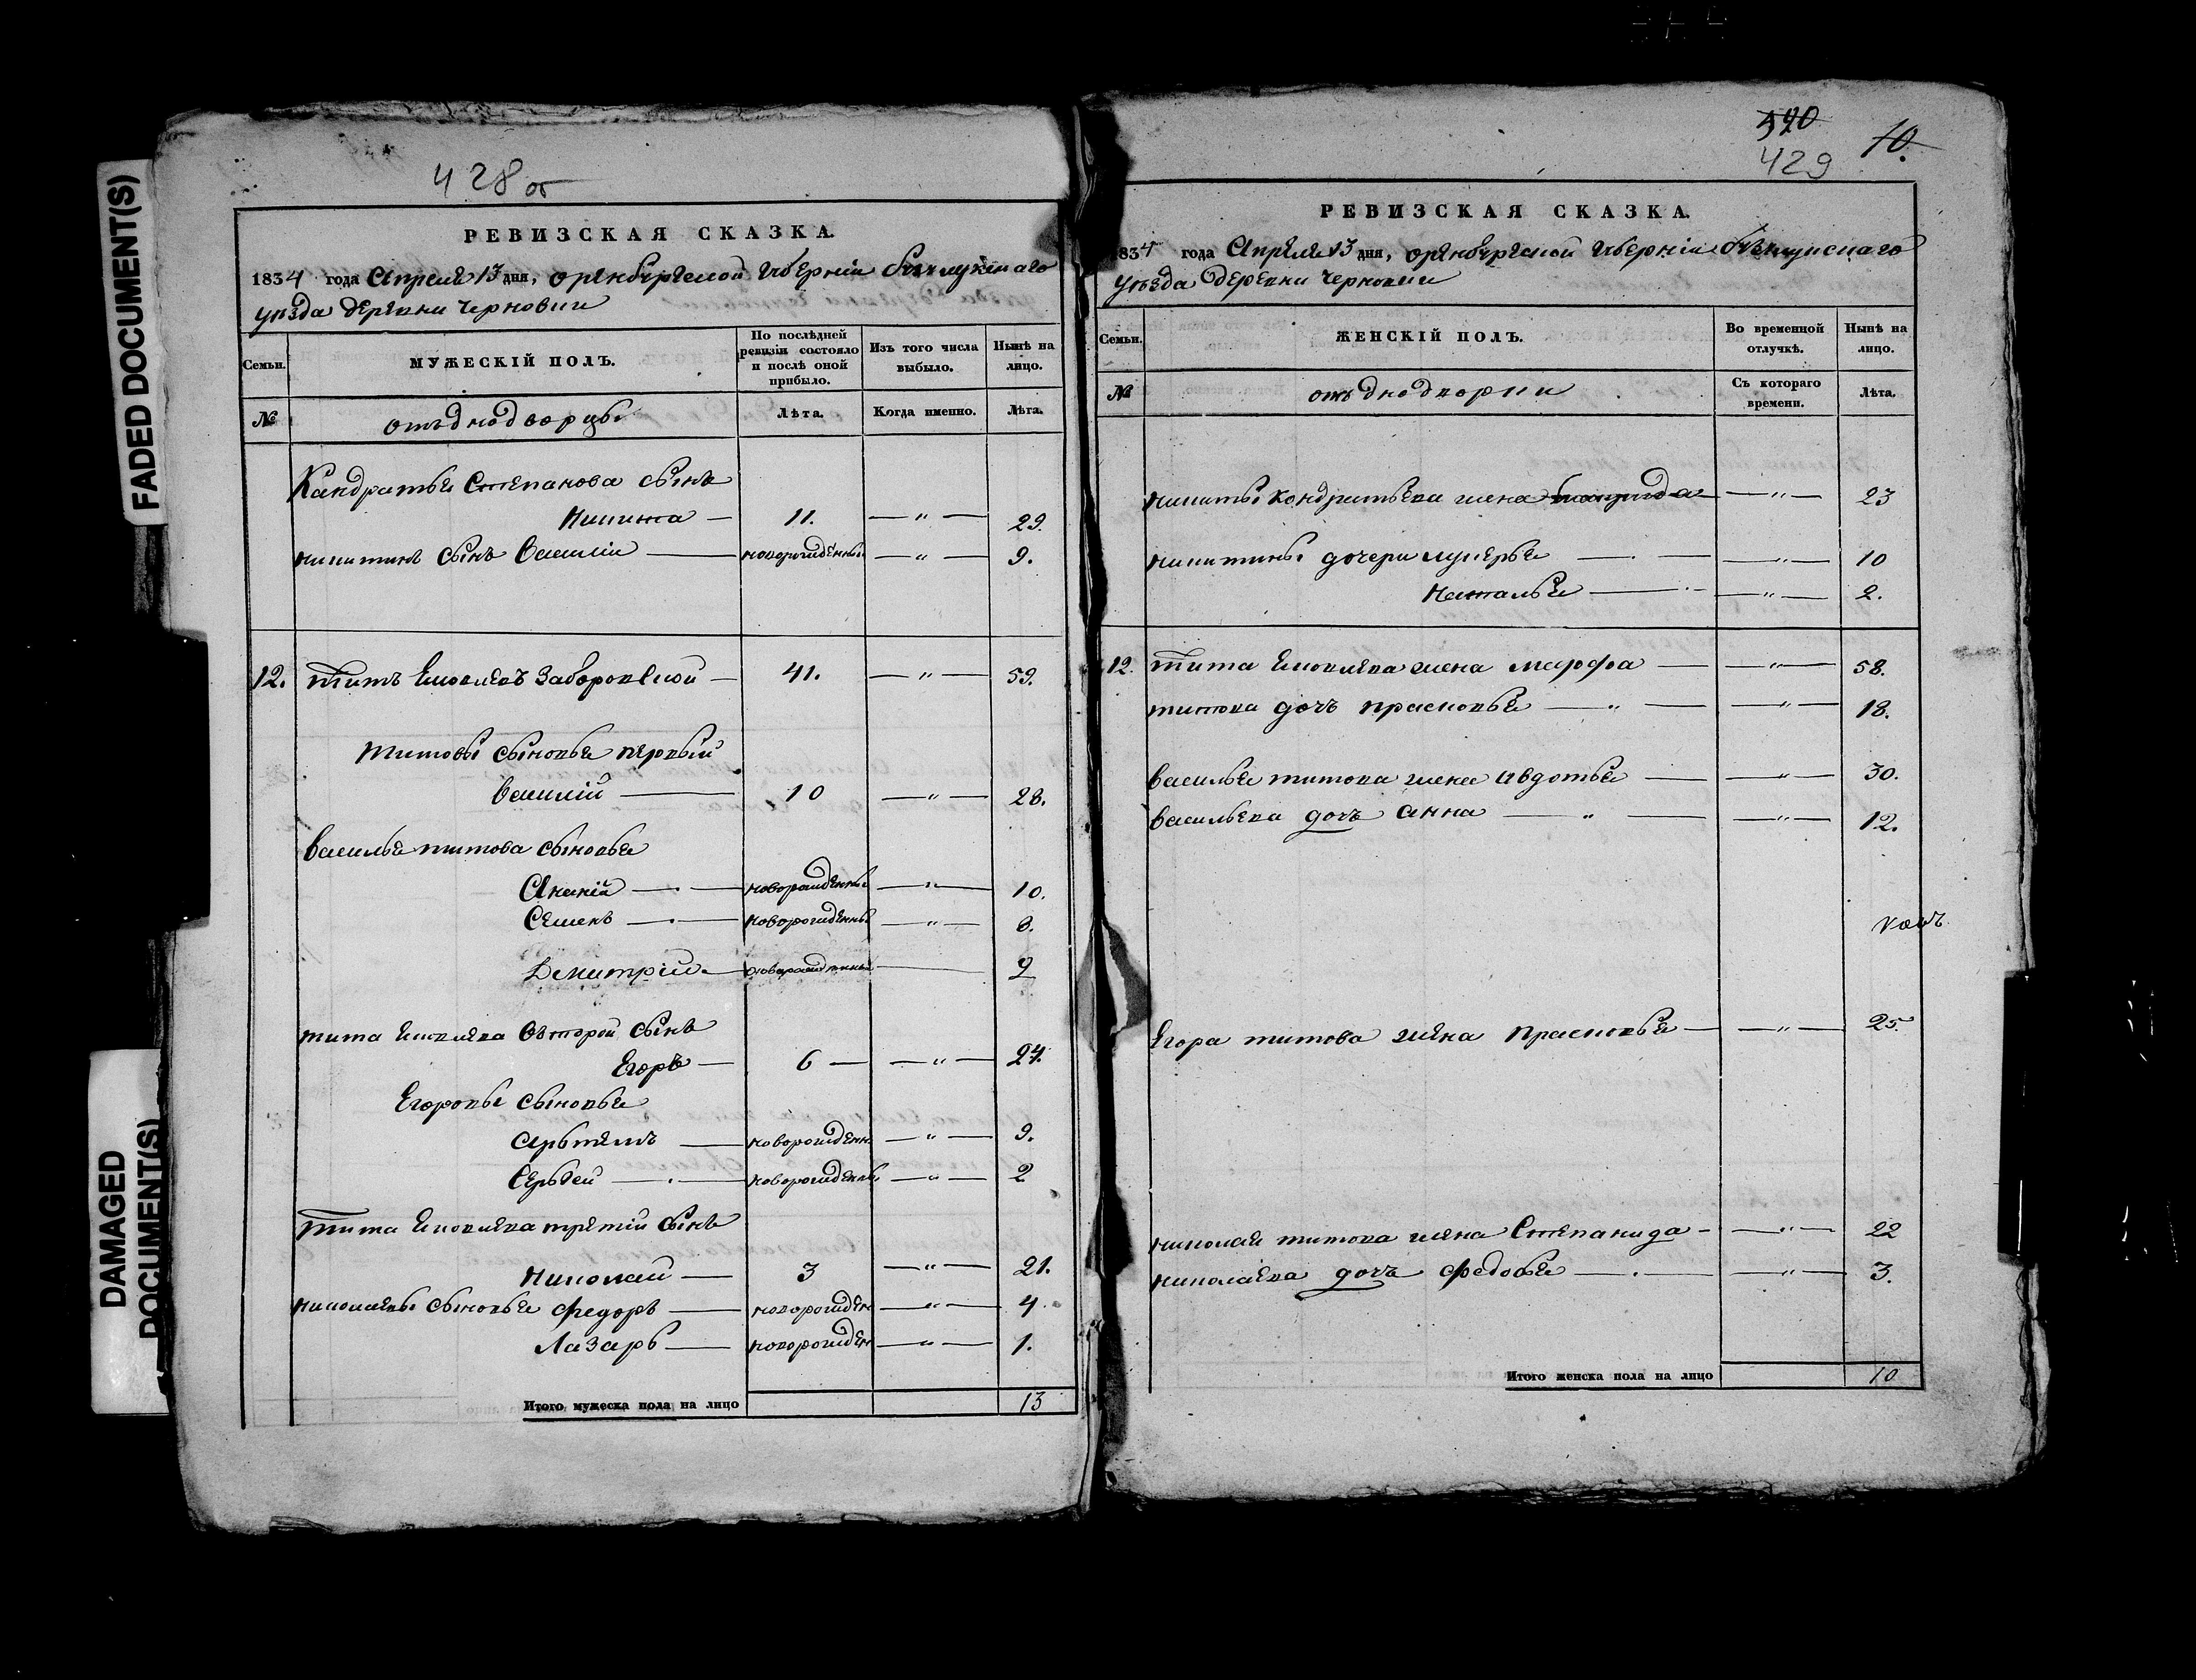 FADED DOCUMENT(S)
DAMAGED
DOCUMENT(S)
428 об
РЕВИЗСКАЯ СКАЗКА.
1834 года Апреля 13 дня, оренбургской губернии
уезда деревни Черновки
Семьи.
МУЖЕСКІЙ ПОЛЪ.
По послѣдней ревизіи состояло и послѣ оной прибыло.
Изъ того числа выбыло.
Нынѣ на лицо.
№
Лѣта.
Когда именно.
Лѣта.
Кандратья Степанова сынъ
Никита — 11. — " — 29.
никитинъ сынъ Василій — новорожденный — " — 9.
12. Титъ Яковлевъ Заборовской — 41. — " — 59.
титовы сыновья первый
Василій — 10 — " — 28.
Василья титова сыновья
новорожденный — " — 10.
Семенъ — новорожденный — " — 8.
Дмитрій — новорожденный — 9
тита яковлева второй сынъ
Егоръ — 6 — " — 24.
Егоровы сыновья
Артемъ — новорожден — " — 9.
Сергей — новорожденный — " — 2
Тита яковлева третій сынъ
Николай — 3 — " — 21.
николаевы сыновья Федоръ — новорожден — " — 4
Лазарь — новорожден — " — 1.
Итого мужеска пола на лицо 13
390
429
10.
РЕВИЗСКАЯ СКАЗКА.
834 года Апреля 13 дня, оренбургской губерніи
уезда деревни Черновки
Семьи.
ЖЕНСКІЙ ПОЛЪ.
Во временной отлучкѣ.
Нынѣ на лицо.
№
Съ котораго времени.
Лѣта.
никиты кондратьева жена — " — 23
никитины дочери лукерья — " — 10
Наталья — " — 2.
12. Тита яковлева жена марфа — " — 58.
титова дочь прасковья — " — 18.
василья титова жена Авдотья — " — 30.
васильева дочь Анна — " — 12.
Егора титова жена прасковья — " — 25.
николая титова жена Степанида — " — 22
николаева дочь федосья — " — 3.
Итого женска пола на лицо 10